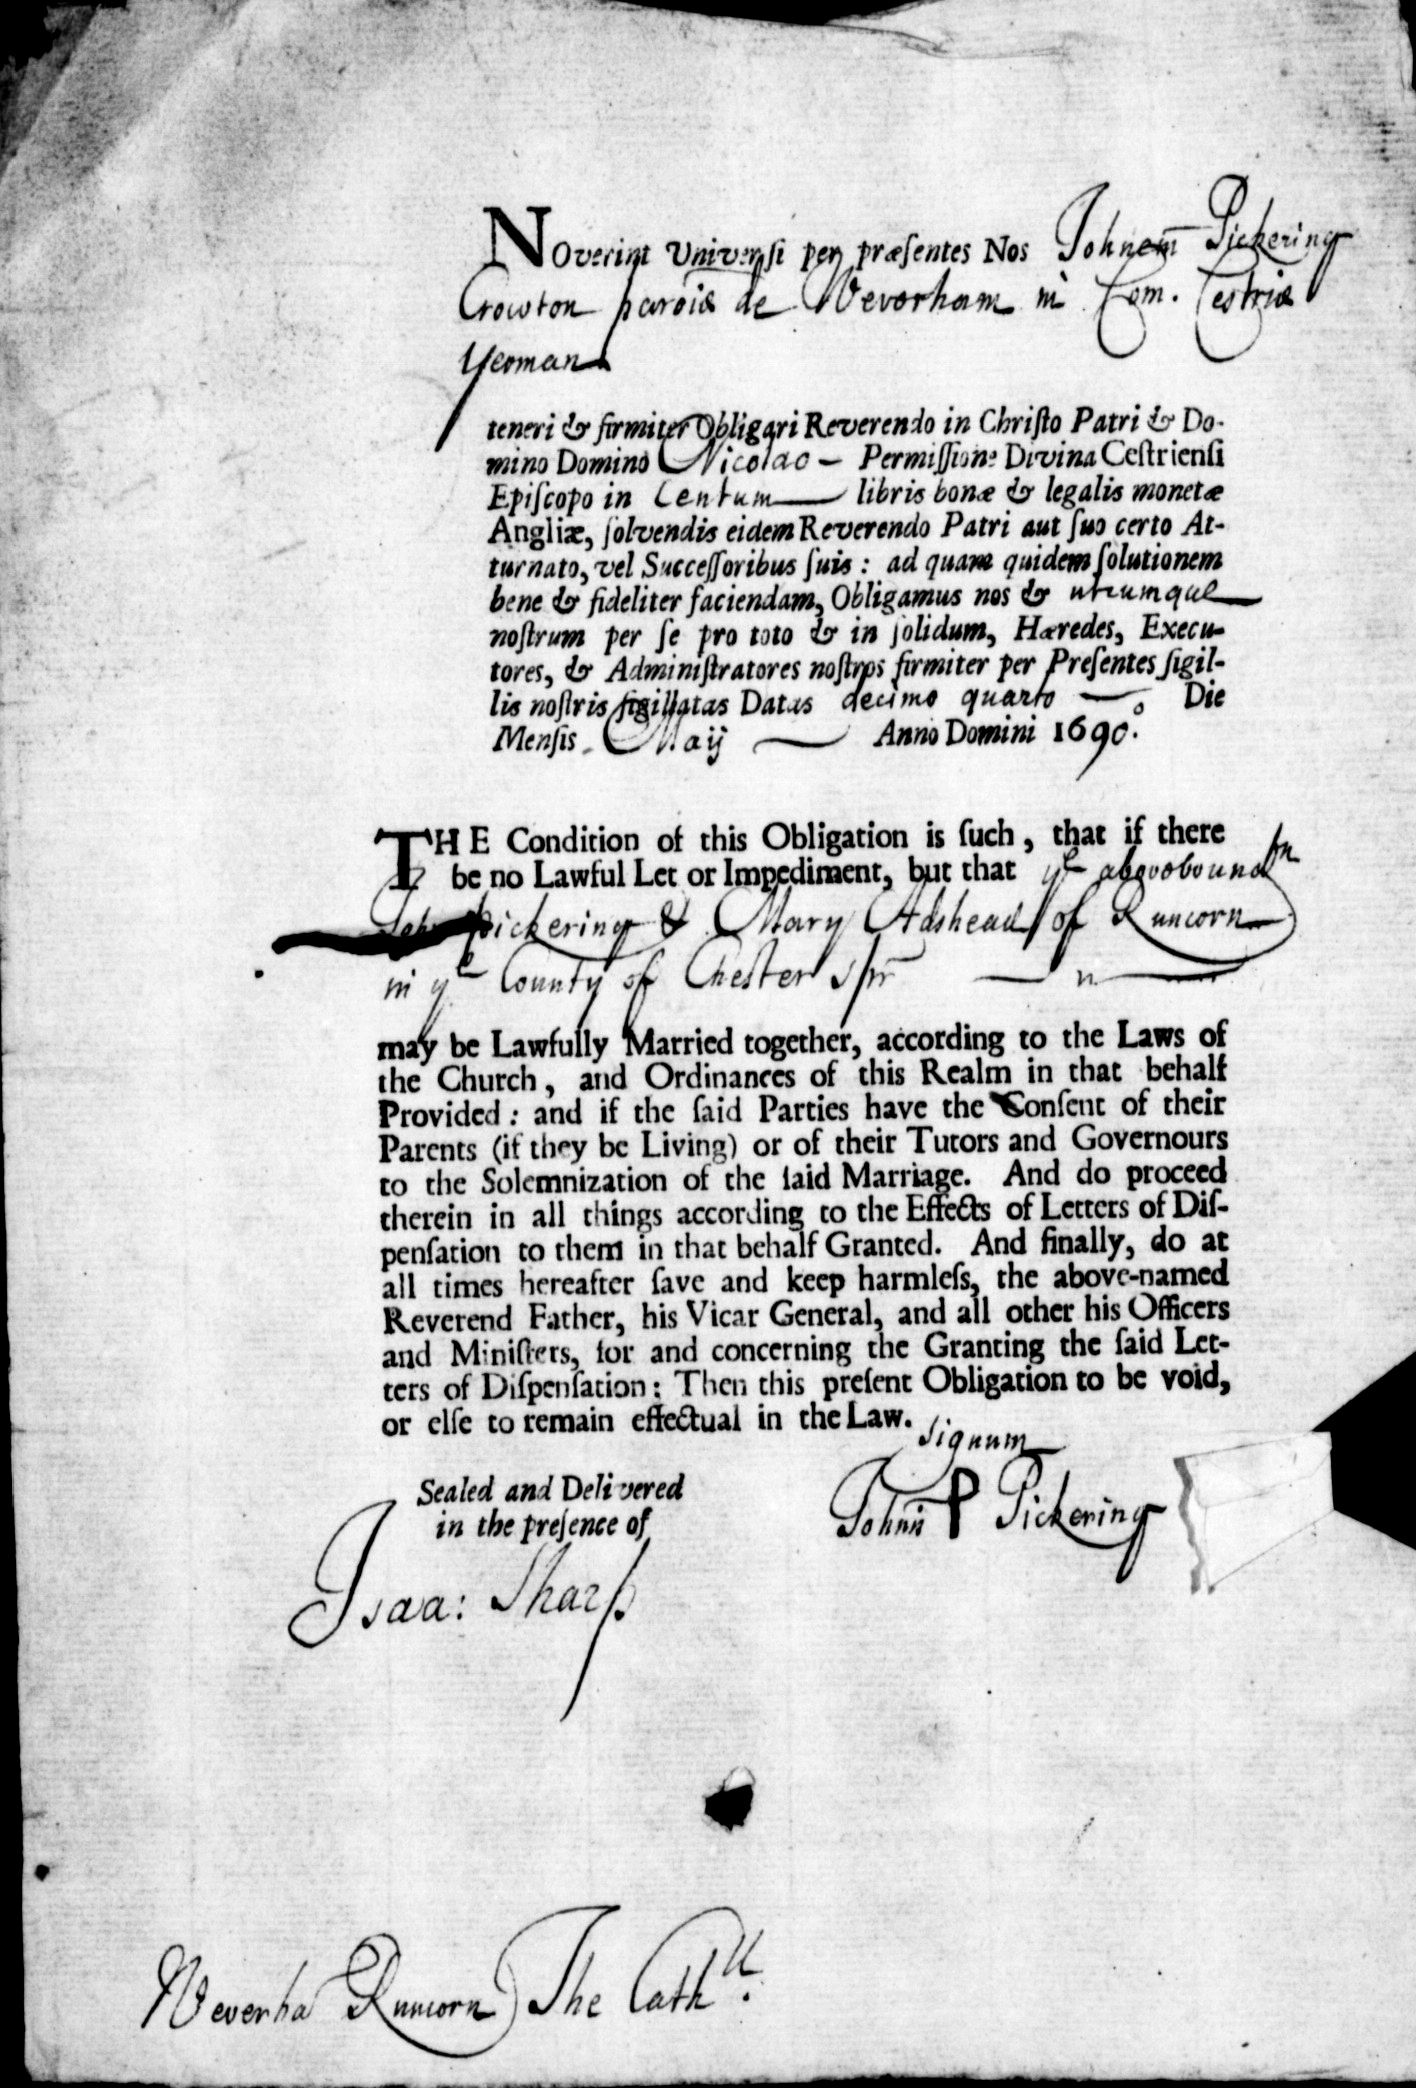 NOverint Universi per præſentes Nos Johnem Pickering
Crowton parõiæ de Weverham in Com. Cestriæ
Yeoman
teneri & firmiter Obligari Reverendo in Chriſto Patri & Do-
mino Domino Nicolao – Permiſſione Divina Ceſtrienſi
Epiſcopo in Centum libris bonæ & legalis monetæ
Angliæ, ſolvendis eidem Reverendo Patri aut ſuo certo At-
turnato, vel Succeſſoribus ſuis: ad quam quidem ſolutionem
bene & fideliter faciendam, Obligamus nos & utrumque
noſtrum per ſe pro toto & in ſolidum, Hæredes, Execu-
tores, & Adminiſtratores noſtros firmiter per Preſentes ſigil-
lis noſtris ſigillatas Datas decimo quarto — Die
Menſis Maij — Anno Domini 1690º.
THE Condition of this Obligation is ſuch, that if there
be no Lawful Let or Impediment, but that yᵉ abovebounden
John Pickering & Mary Adshead of Runcorn
in yᵉ County of Chester spr
may be Lawfully Married together, according to the Laws of
the Church, and Ordinances of this Realm in that behalf
Provided: and if the ſaid Parties have the Conſent of their
Parents (if they be Living) or of their Tutors and Governours
to the Solemnization of the ſaid Marriage. And do proceed
therein in all things according to the Effects of Letters of Diſ-
penſation to them in that behalf Granted. And finally, do at
all times hereafter ſave and keep harmleſs, the above-named
Reverend Father, his Vicar General, and all other his Officers
and Miniſters, for and concerning the Granting the ſaid Let-
ters of Diſpenſation: Then this preſent Obligation to be void,
or elſe to remain effectual in the Law.
Signum
Johnis P Pickering
Sealed and Delivered
in the preſence of
Isaa: Sharp
Weverha Runcorn The Cathˡˡ.